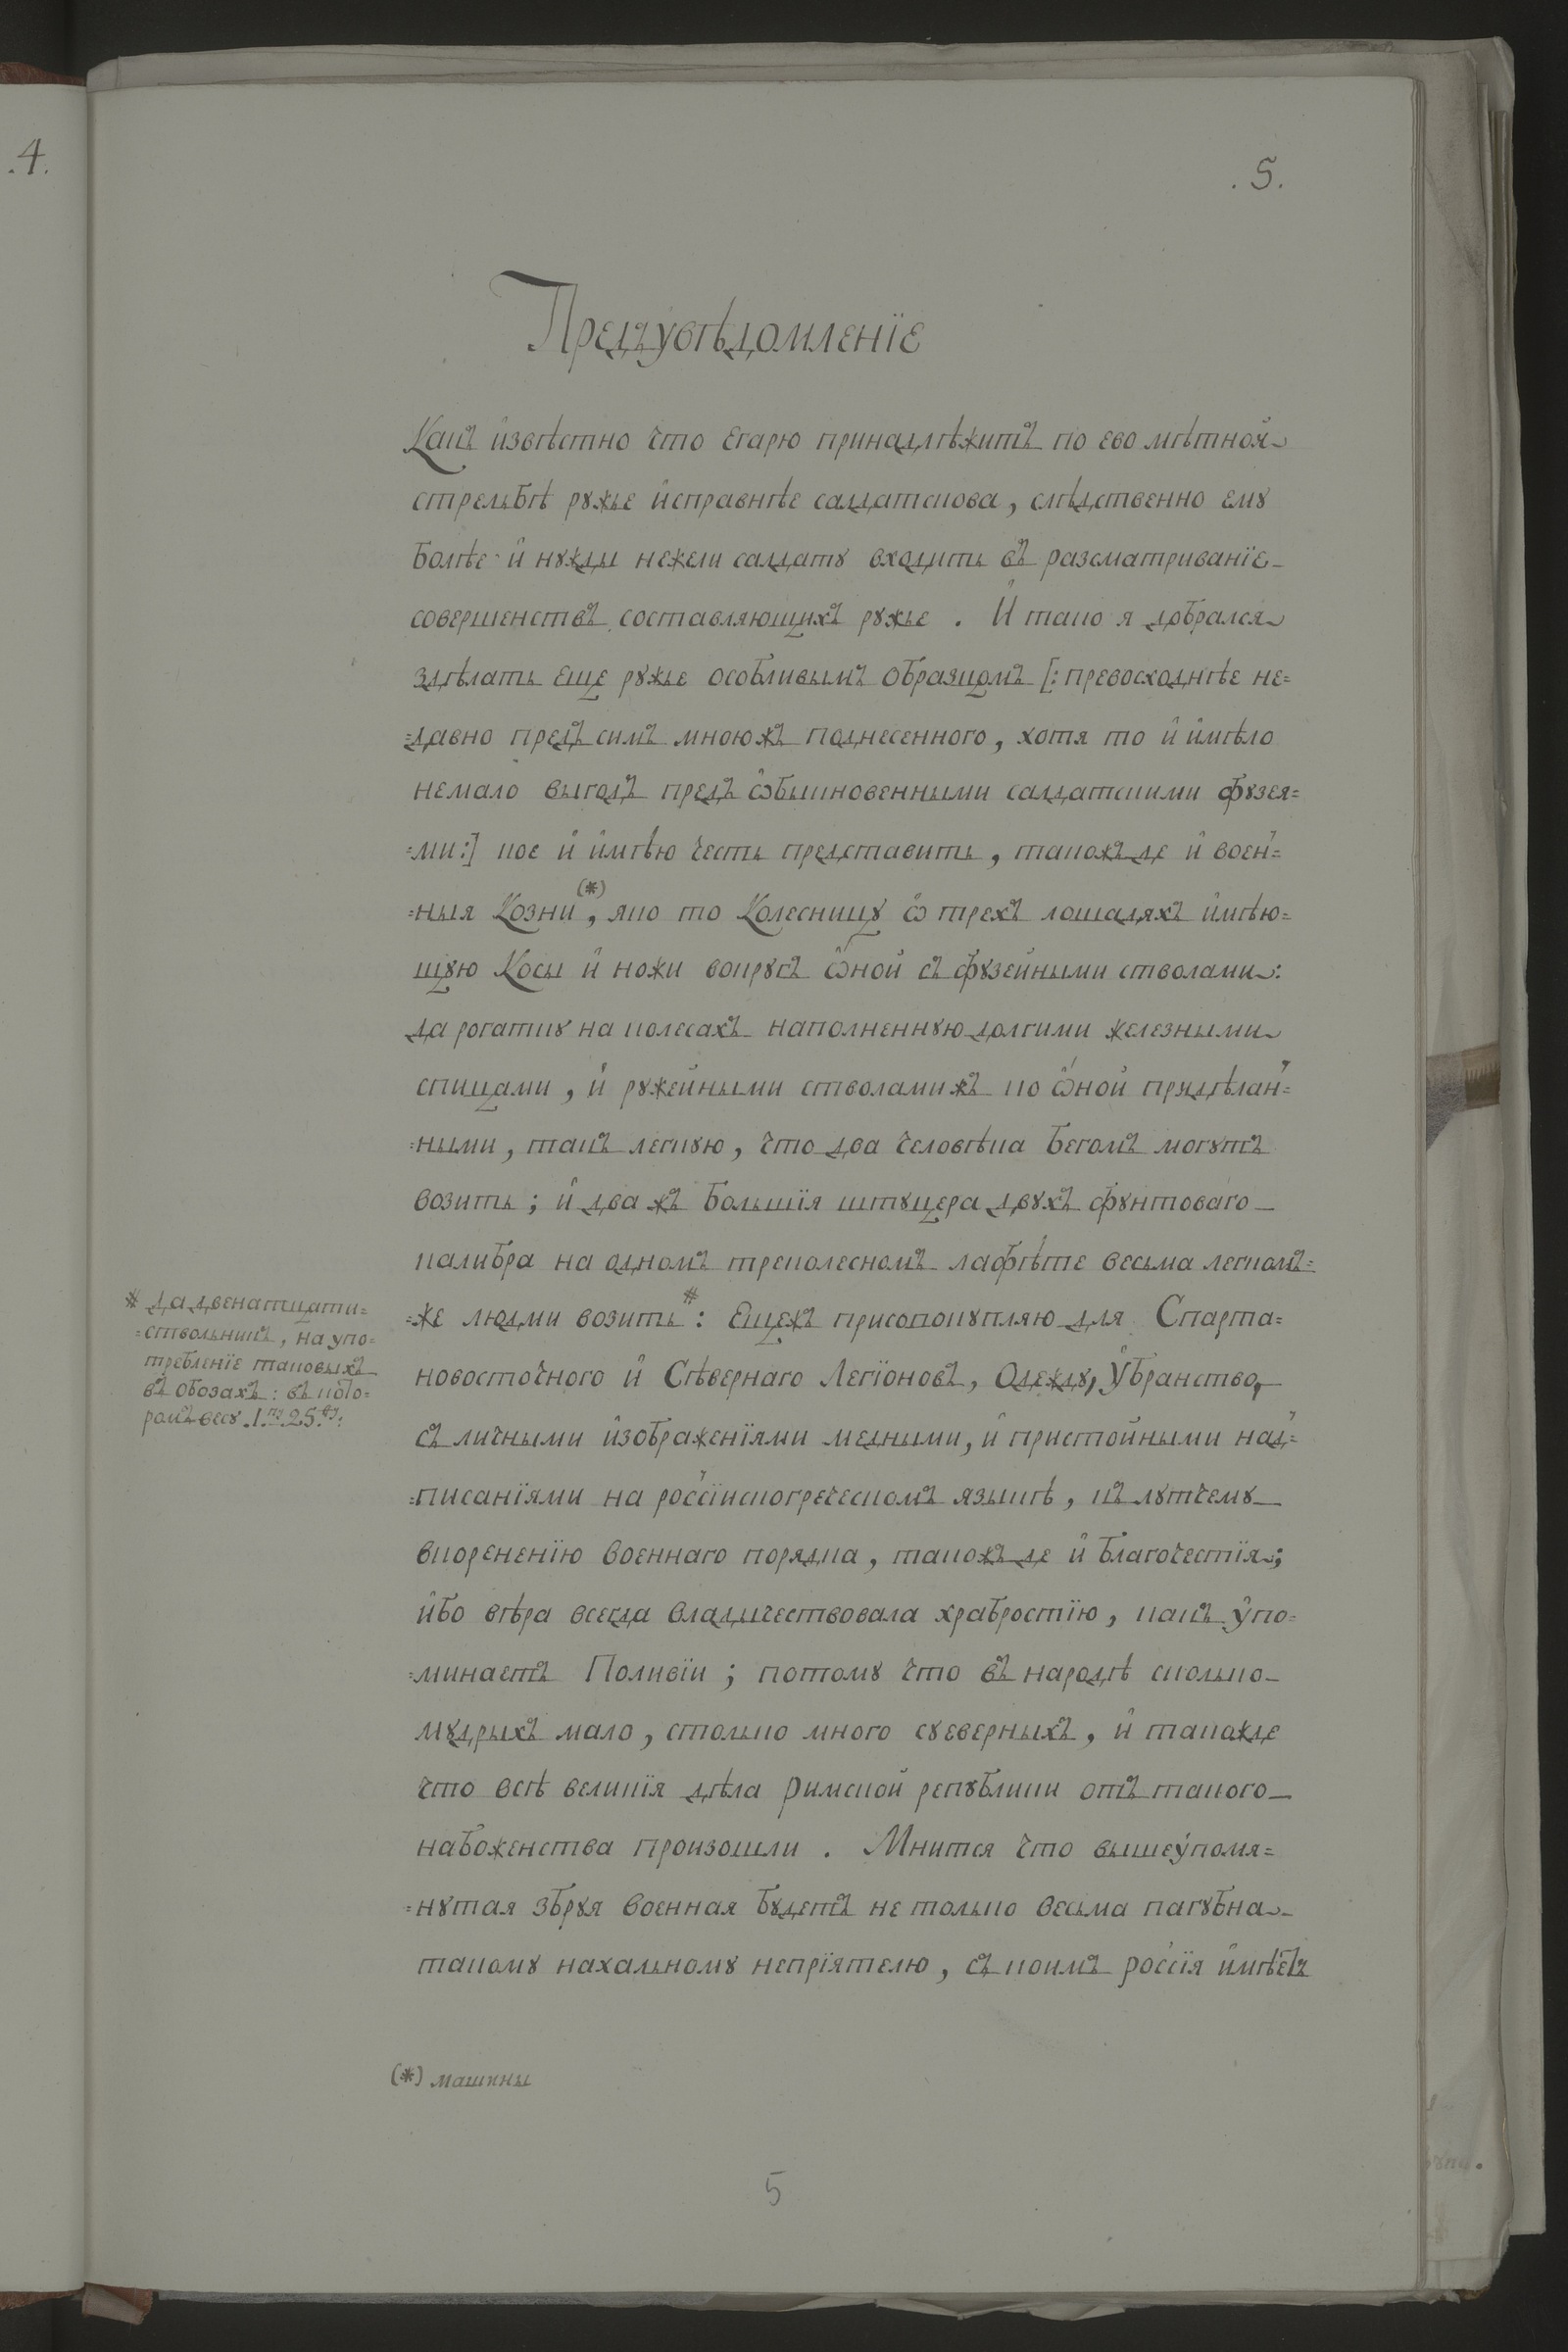 .4.
.5.
Предъувѣдомленїе
Какъ извѣстно что егарю принадлѣжитъ по ево мѣтной
стрельбѣ ружье исправнѣе салдатскова, слѣдственно ему
болѣе и нужды нежели салдату входить въ разсматриванїе
совершенствъ составляющихъ ружье . И тако я добрался
здѣлать еще ружье особливымъ образцомъ [: превосходнѣе не=
=давно предъ симъ мноюжъ поднесенного, хотя то и имѣло
немало выгодъ предъ ѡбыкновенными салдатскими фузея=
=ми:] кое и имѣю честь представить, такожъ де и воен=
=ныя Козни(*), яко то Колесницу ѡ трехъ лошадяхъ имѣю=
щую Косы и ножи вокругъ ѡной съ фузейными стволами:
да рогатку на колесахъ наполненную долгими железными
спицами, и ружейными стволамижъ ко ѡной придѣлан=
=ными, такъ легкую, что два человѣка бегомъ могутъ
возить; и два жъ большїя штуцера двухъ фунтоваго
калибра на одномъ треколесномъ лафѣте весьма легкомъ=
=же людми возить#: Ещежъ присопокупляю для Спарта=
* да двенатцати=
=ствольникъ, на упо=
требленїе таковыхъ
въ обозахъ: въ кото=
ромъ весу .1.пу 25.фу:
новосточного и Сѣвернаго Легїоновъ, Одежду, Убранство,
съ личными изображенїями медными, и пристойными над=
=писанїями на россїйскогреческомъ языкѣ, къ лутчему
вкорененїю военнаго порядка, такожъ де и благочестїя;
ибо вѣра всегда владычествовала храбростїю, какъ упо=
=минаетъ Поливїи; потому что въ народѣ сколько
мудрыхъ мало, столько много суеверныхъ, и такожде
что всѣ великїя дѣла римской републики отъ такого
набоженства произошли . Мнится что вышеупомя=
=нутая збруя военная будетъ не только весьма пагубна
такому нахальному непрїятелю, съ коимъ россїя имѣетъ
(*) машины
5